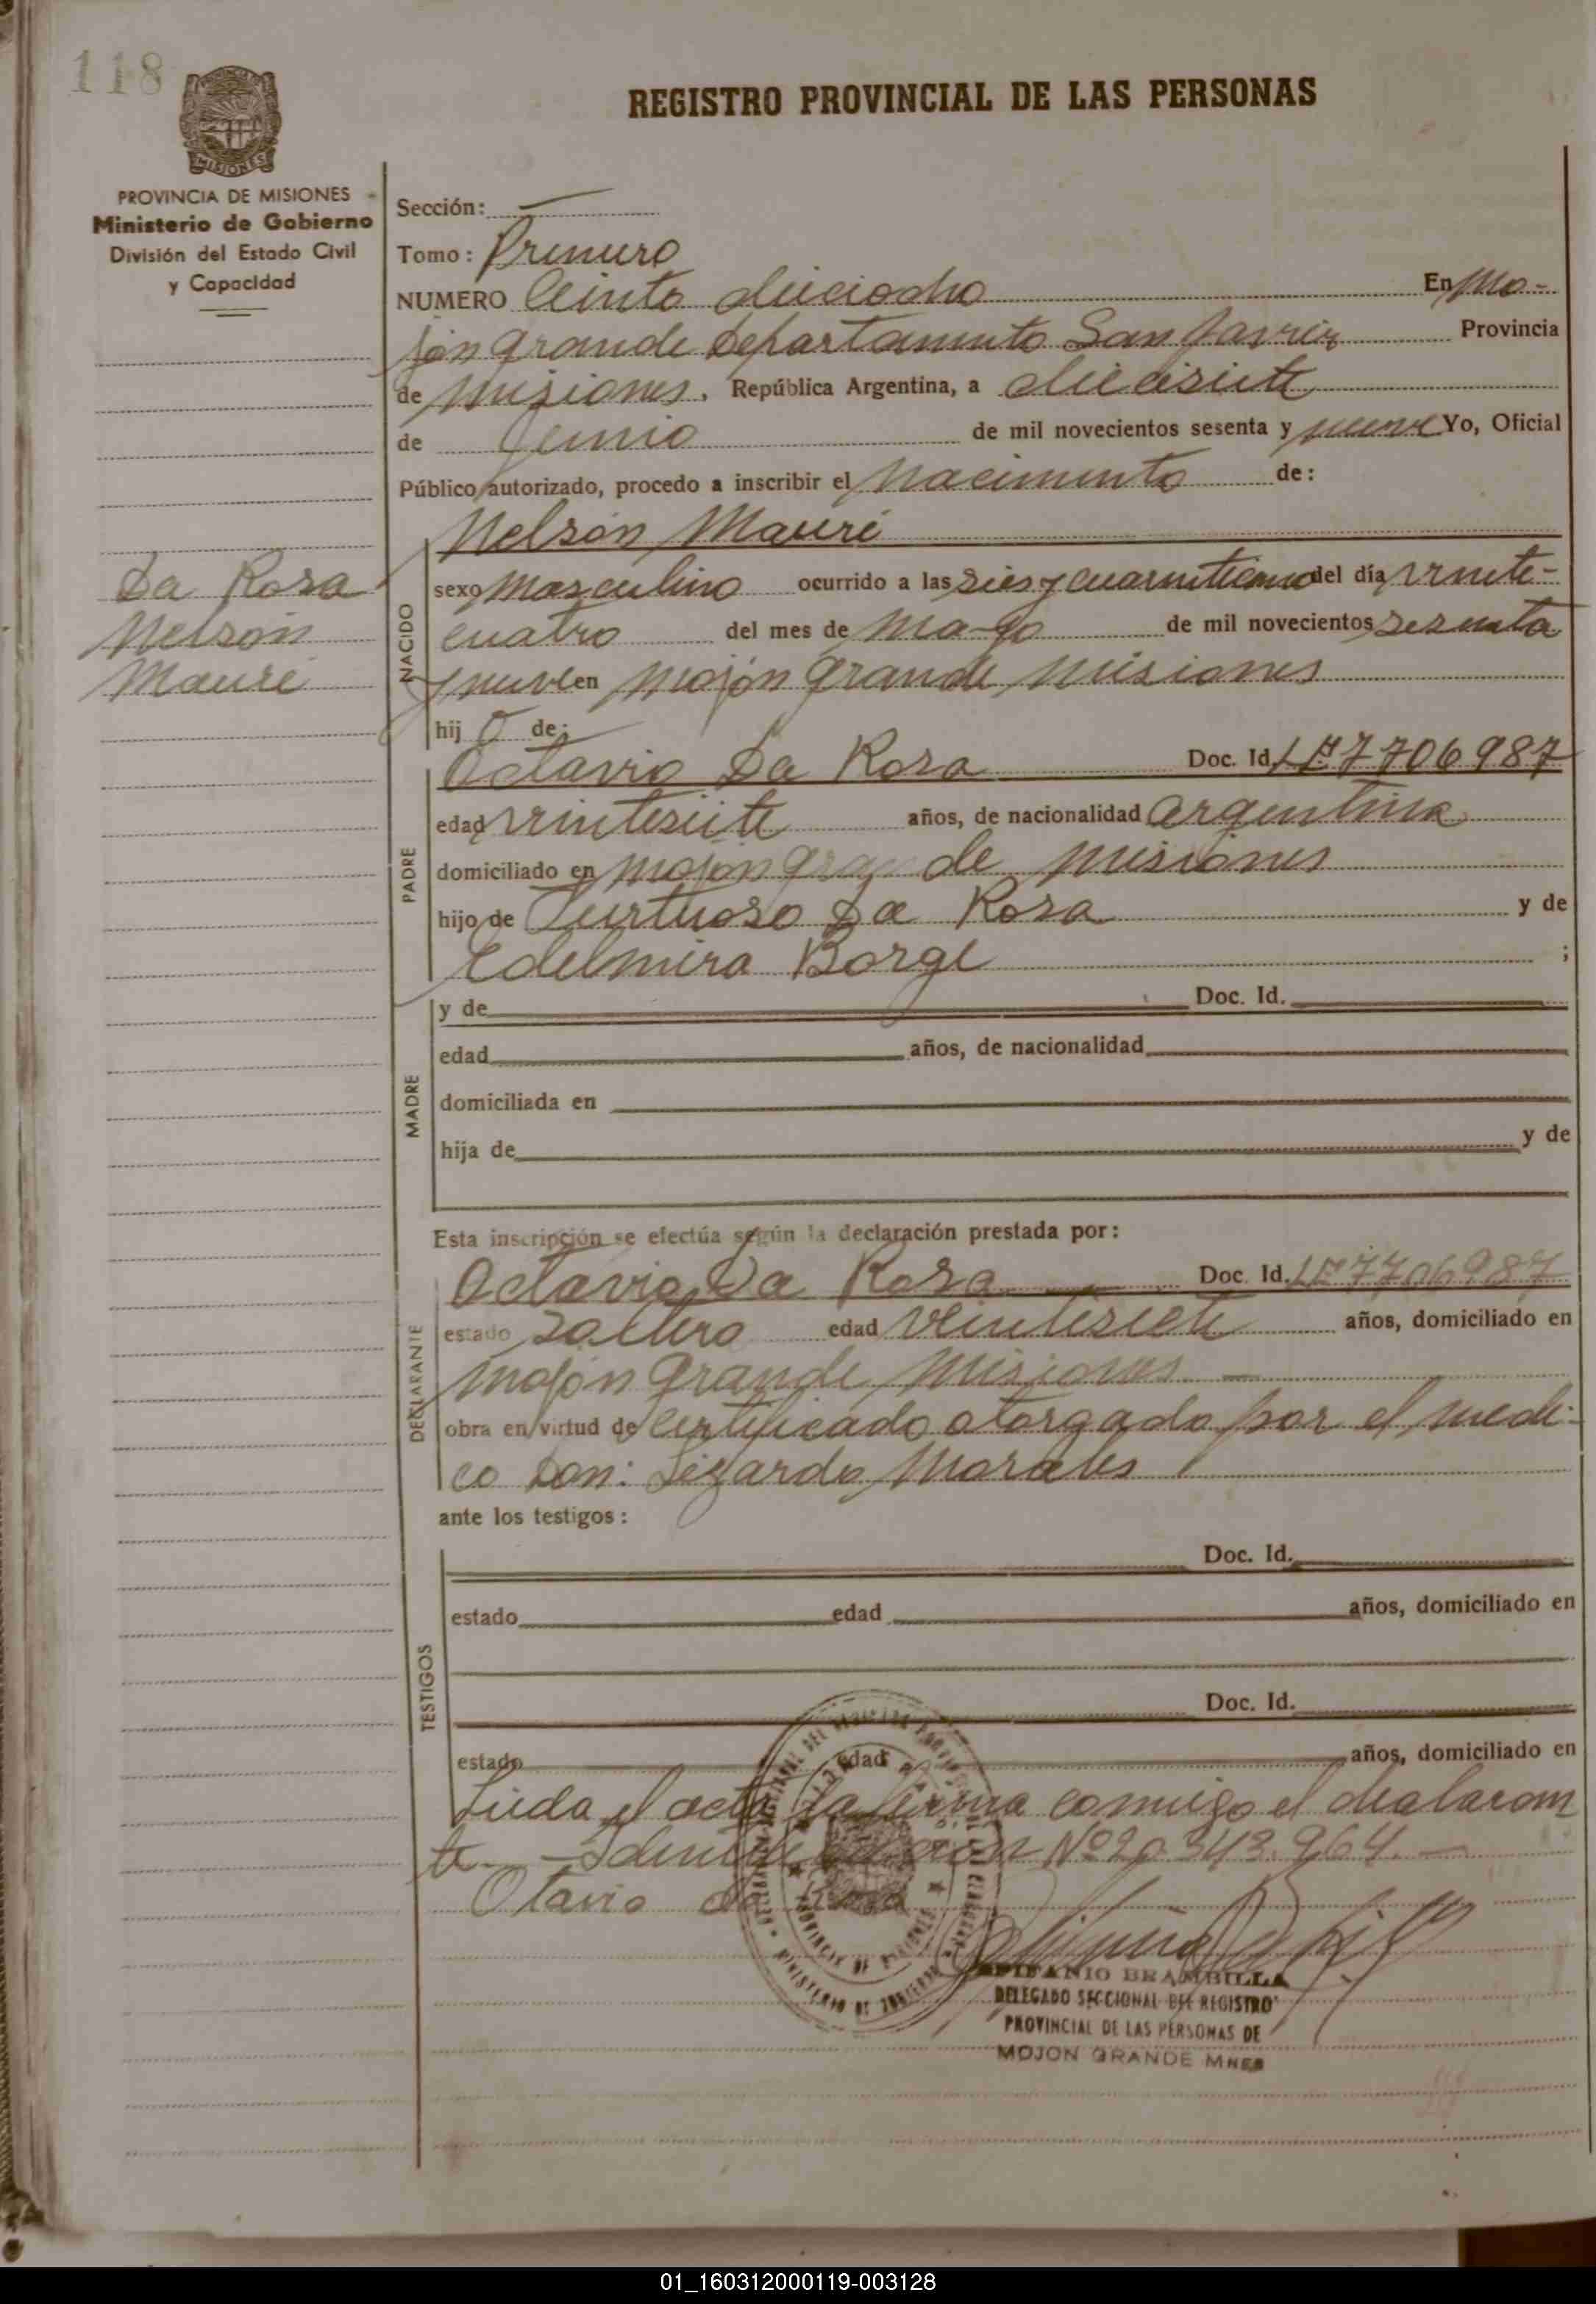 118
MISIONES
PROVINCIA DE MISIONES
Ministerio de Gobierno
División del Estado Civil
y Capacidad
REGISTRO PROVINCIAL DE LAS PERSONAS
Sección:
Tomo: Primero
NUMERO Ciento dieciocho En Mo-
jón grande Departamento San Javier Provincia
de Misiones, República Argentina, a diecisiete
de Junio de mil novecientos sesenta y nueve Yo, Oficial
Público autorizado, procedo a inscribir el nacimiento de:
Nelson Mauré
Da Rosa
Nelson
Mauré
NACIDO
sexo masculino ocurrido a las del día veinte-
cuatro del mes de mayo de mil novecientos sesenta
y nueve en Mojón grande Misiones
hij o de:
PADRE
Octavio Da Rosa Doc. Id. LE 7706987
edad veintesiete años, de nacionalidad argentina
domiciliado en mojon grande misiones
hijo de Turtuoso Da Rosa y de
Edelmira Borge ;
MADRE
y de Doc. Id.
edad años, de nacionalidad
domiciliada en
hija de y de
Esta inscripción se efectúa según la declaración prestada por:
DECLARANTE
Octavio Da Rosa Doc. Id. LE 7706987
estado soltero edad veintesiete años, domiciliado en
mojón grande misiones
obra en virtud de certificado otorgado por el medi-
co Don: Lizardo Morales
ante los testigos:
TESTIGOS
Doc. Id.
estado edad años, domiciliado en
Doc. Id.
estado edad años, domiciliado en
Leida el acta la firma comigo el dealaran
te. - Nº 20.343.964.-
Otavio da Rosa
EPIFANIO BRAMBILLA
DELEGADO SECCIONAL DEL REGISTRO
PROVINCIAL DE LAS PERSONAS DE
MOJON GRANDE MNES
01_160312000119-003128